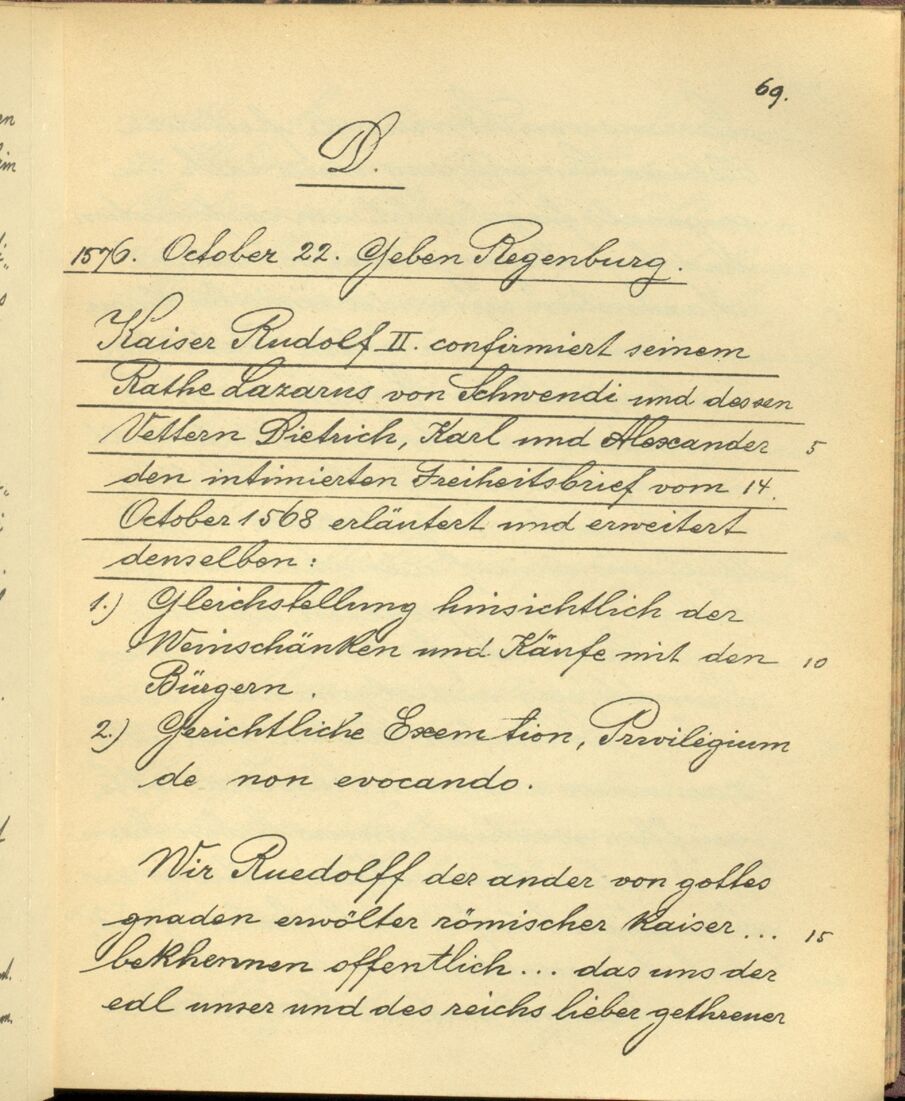 69.
D.
1576. October 22. Geben Regenburg.
Kaiser Rudolf II. confirmiert seinem
Rathe Lazarus von Schwendi und dessen
Vettern Dietrich, Karl und Alexander 5
den intimierten Freiheitsbrief vom 14.
October 1568 erläutert und erweitert
denselben:
1.) Gleichstellung hinsichtlich der
Weinschänken und Käufe mit den 10
Bürgern.
2.) Gerichtliche Exemtion, Privilegium
de non evocando.
Wir Ruedolff der ander von gottes
gnaden erwölter römischer Kaiser... 15
bekhennen offentlich... das uns der
edl unser und des reichs lieber gethreuer